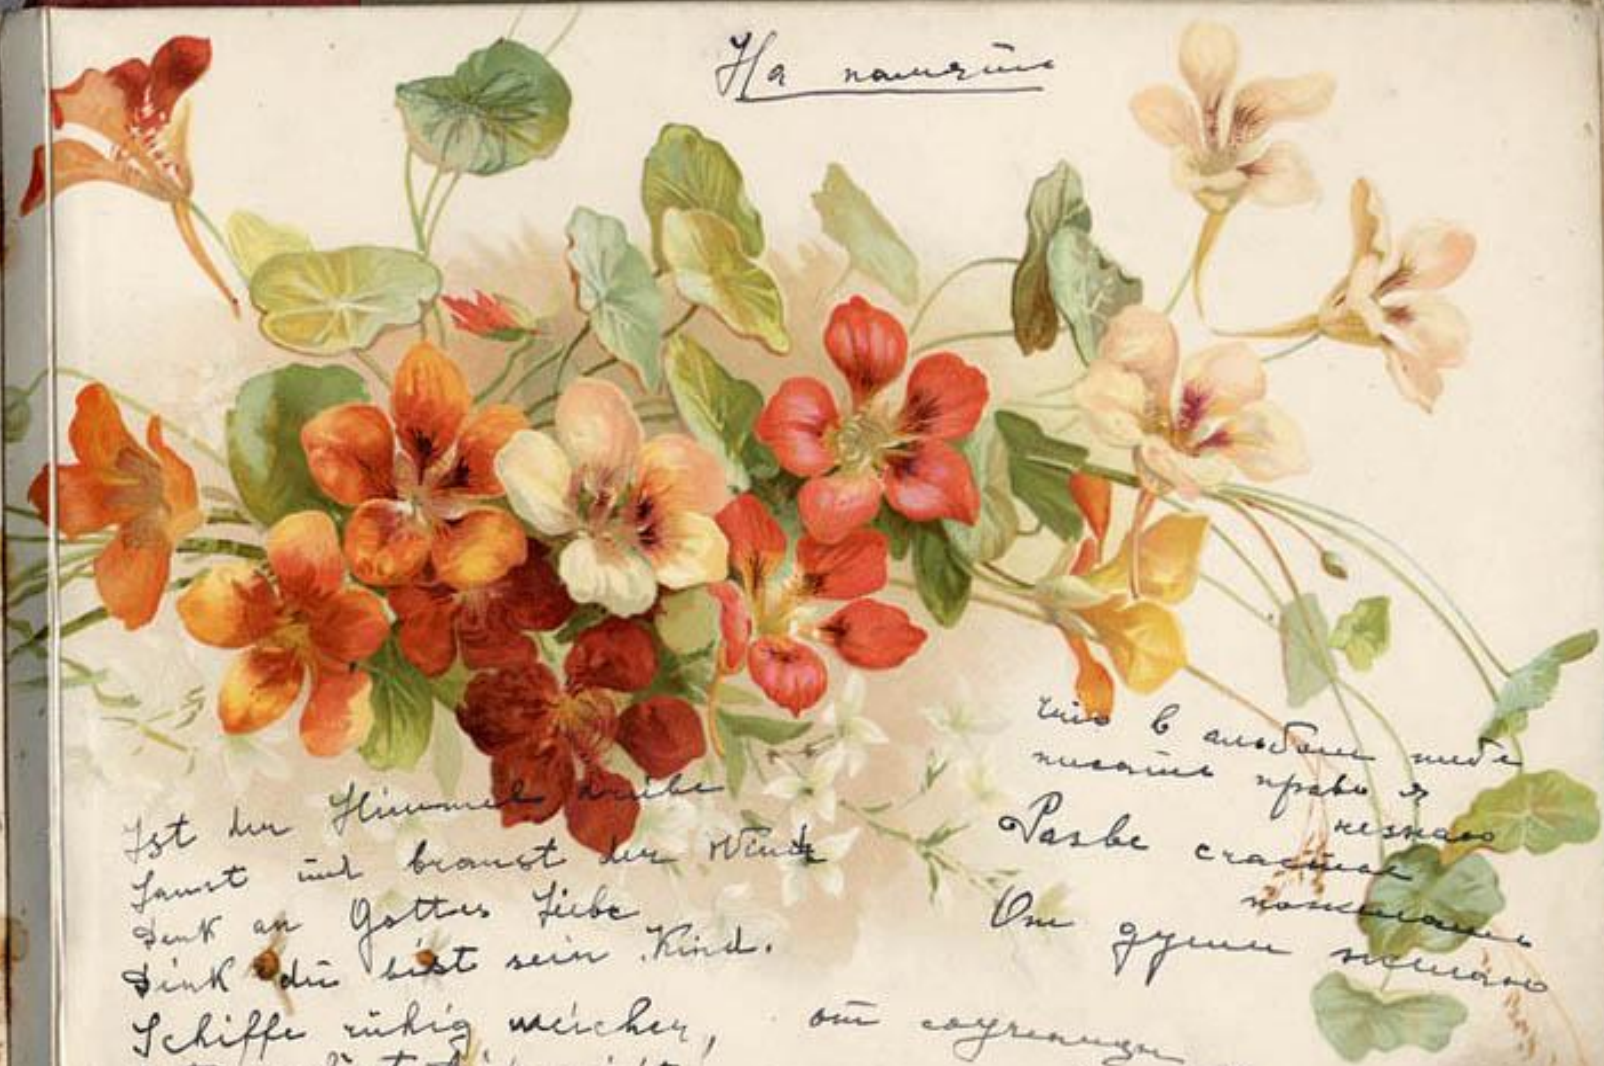 На память
Ist der Himmel trübe
saust und braust der Wind
Denk an Gottes Liebe
Denk du bist sein Kind.
Schiffe ruhig weiter,
что в альбом тебе
писать право я
незнаю
Разве счастье
пожелать
От души желаю
от